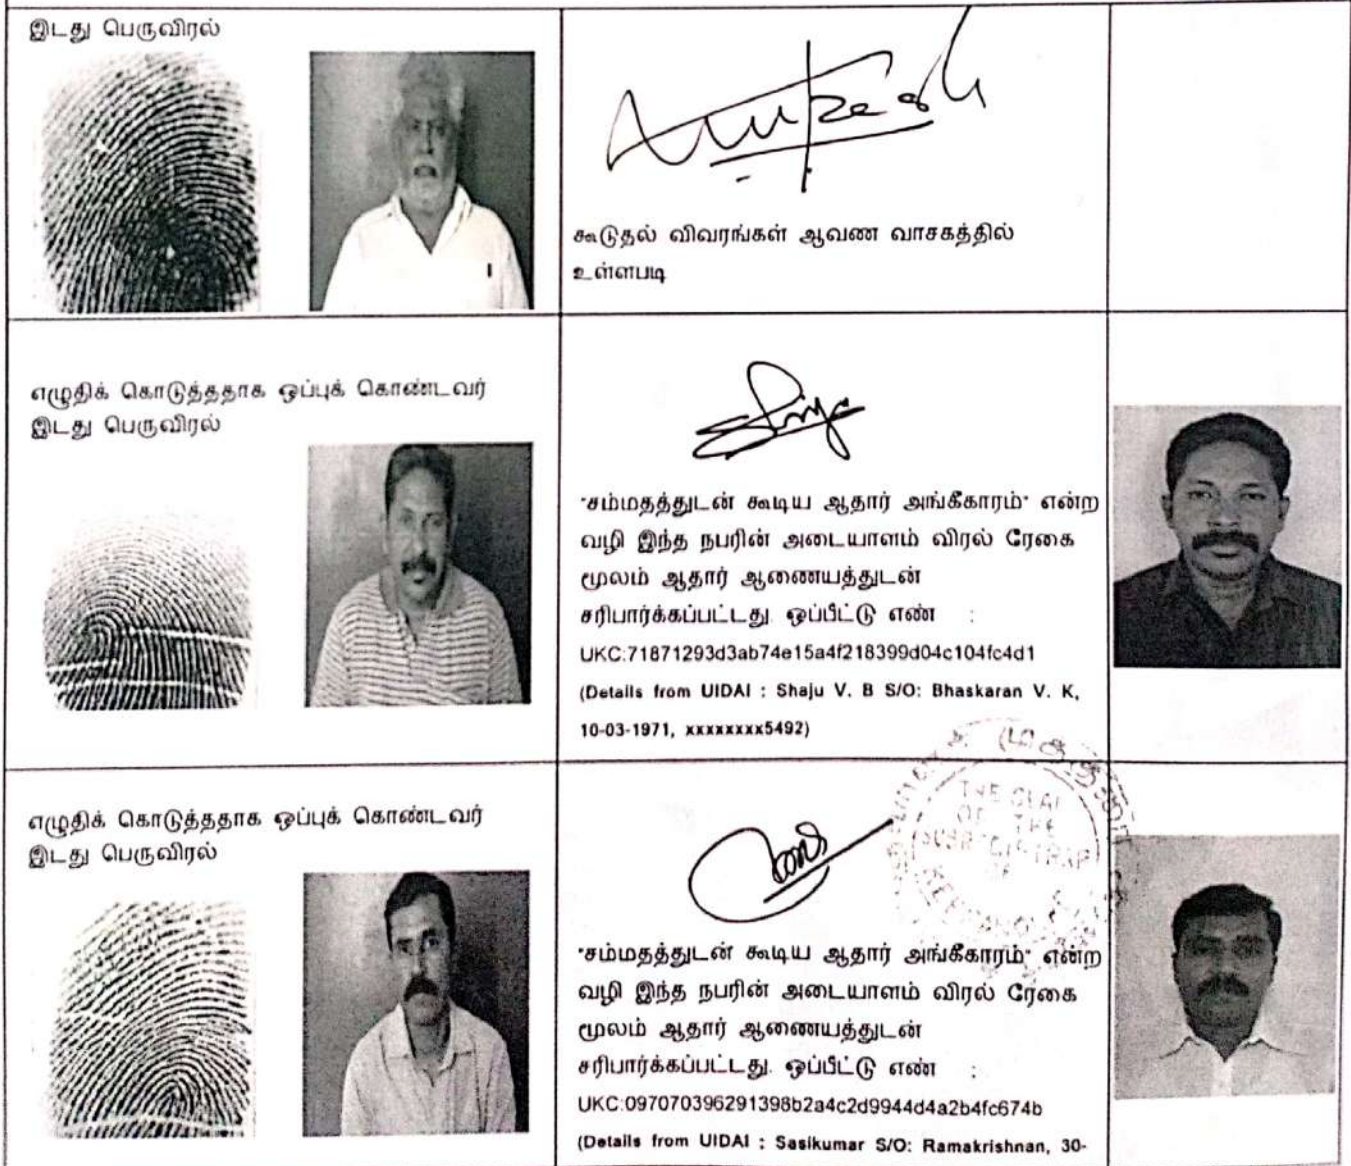 இடது பெருவிரல்
கூடுதல் விவரங்கள் ஆவண வாசகத்தில்
உள்ளபடி
எழுதிக் கொடுத்ததாக ஒப்புக் கொண்டவர்
இடது பெருவிரல்
"சம்மதத்துடன் கூடிய ஆதார் அங்கீகாரம்" என்ற
வழி இந்த நபரின் அடையாளம் விரல் ரேகை
மூலம் ஆதார் ஆணையத்துடன்
சரிபார்க்கப்பட்டது. ஒப்பீட்டு எண் :
UKC:71871293d3ab74e15a4f218399d04c104fc4d1
(Details from UIDAI : Shaju V. B S/O: Bhaskaran V. K,
10-03-1971, xxxxxxxx5492)
எழுதிக் கொடுத்ததாக ஒப்புக் கொண்டவர்
இடது பெருவிரல்
THE SEAL
OF THE
"சம்மதத்துடன் கூடிய ஆதார் அங்கீகாரம்" என்ற
வழி இந்த நபரின் அடையாளம் விரல் ரேகை
மூலம் ஆதார் ஆணையத்துடன்
சரிபார்க்கப்பட்டது. ஒப்பீட்டு எண் :
UKC:097070396291398b2a4c2d9944d4a2b4fc674b
(Details from UIDAI : Sasikumar S/O: Ramakrishnan, 30-